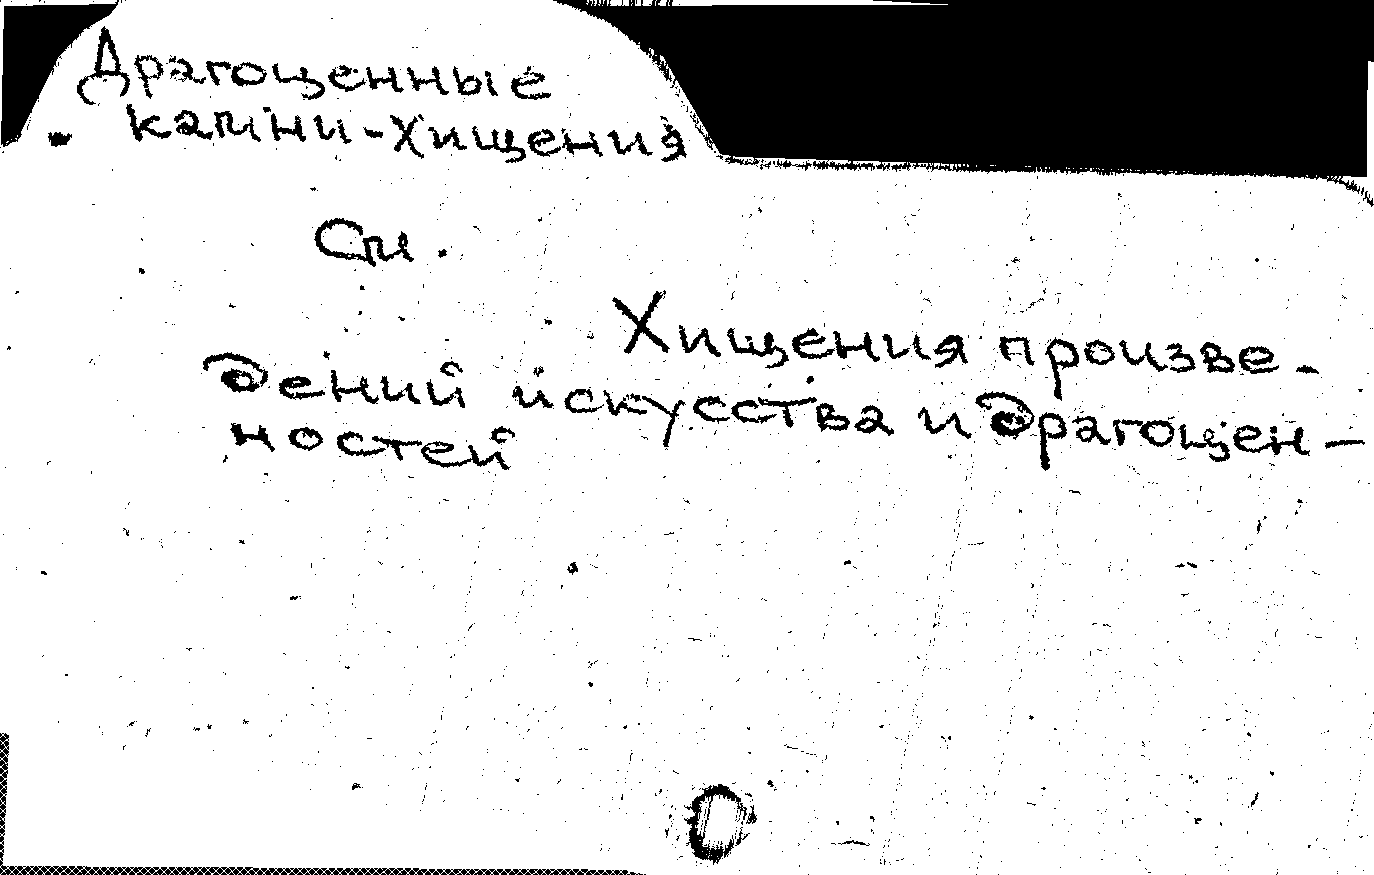 Драгоценные
камни-Хищения
См.
Хищения произве-
дений искусства и драгоцен-
ностей